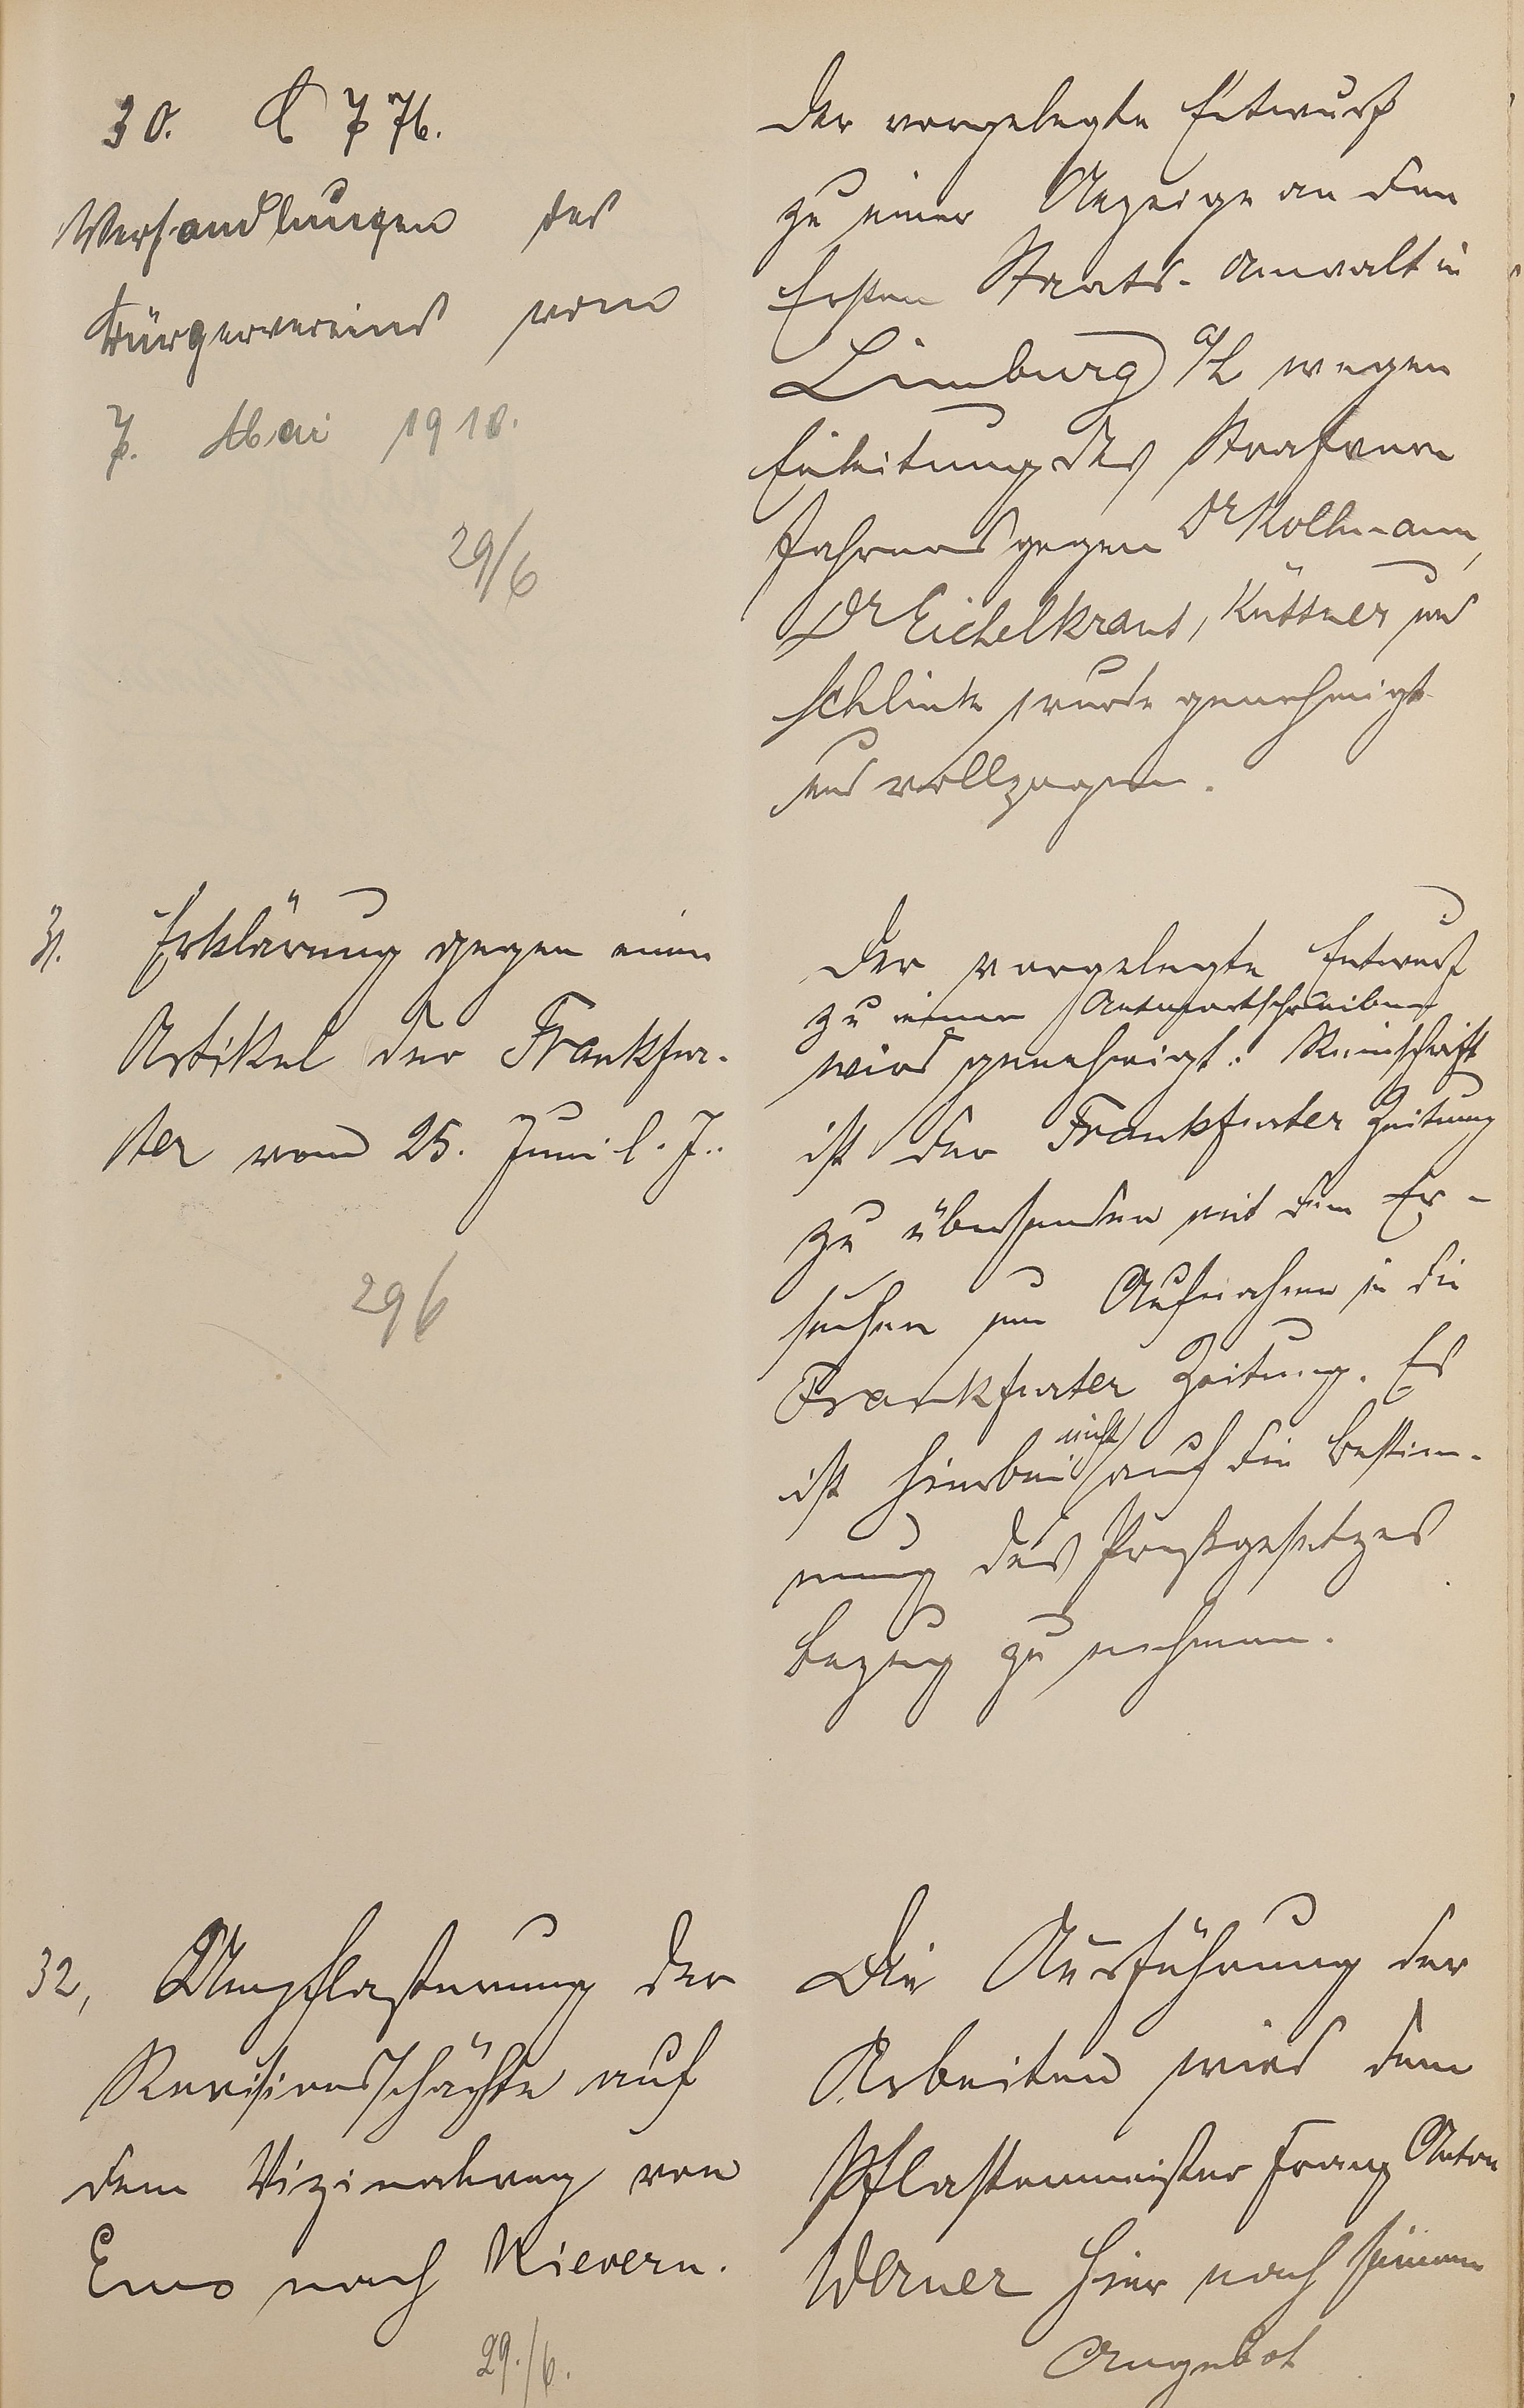 30. C 7 76.
Verhandlungen des
Bürgervereins vom
7. Mai 1910.
29/6
Der vorgelegte Entwurf
zu einer Anzeige an den
Ersten Staats-Anwalt in
Limburg a/L wegen
Einleitung des Strafver
fahrens gegen Dr Kollmann,
Dr Eichelkraut, Küttner und
Schlink wurde genehmigt
und vollzogen.
31. Erklärung gegen einen
Artikel der Frankfur-
ter vom 25. Juni l. J..
29/6
Der vorgelegte Entwurf
zu einem Antwortschreiben
wird genehmigt. Reinschrift
ist der Frankfurter Zeitung
zu übersenden mit dem Er-
suchen um Aufnahme in die
Frankfurter Zeitung. Es
ist hierbei nicht auf die Bestim-
mung des Preßgesetzes
Bezug zu nehmen.
32, Umpflasterung der
Revisionsschächte auf
dem Vizinalweg von
Ems nach Nievern.
29./6.
Die Ausführung der
Arbeiten wird dem
Pflastermeister Franz Anton
Werner hier nach seinem
Angebot